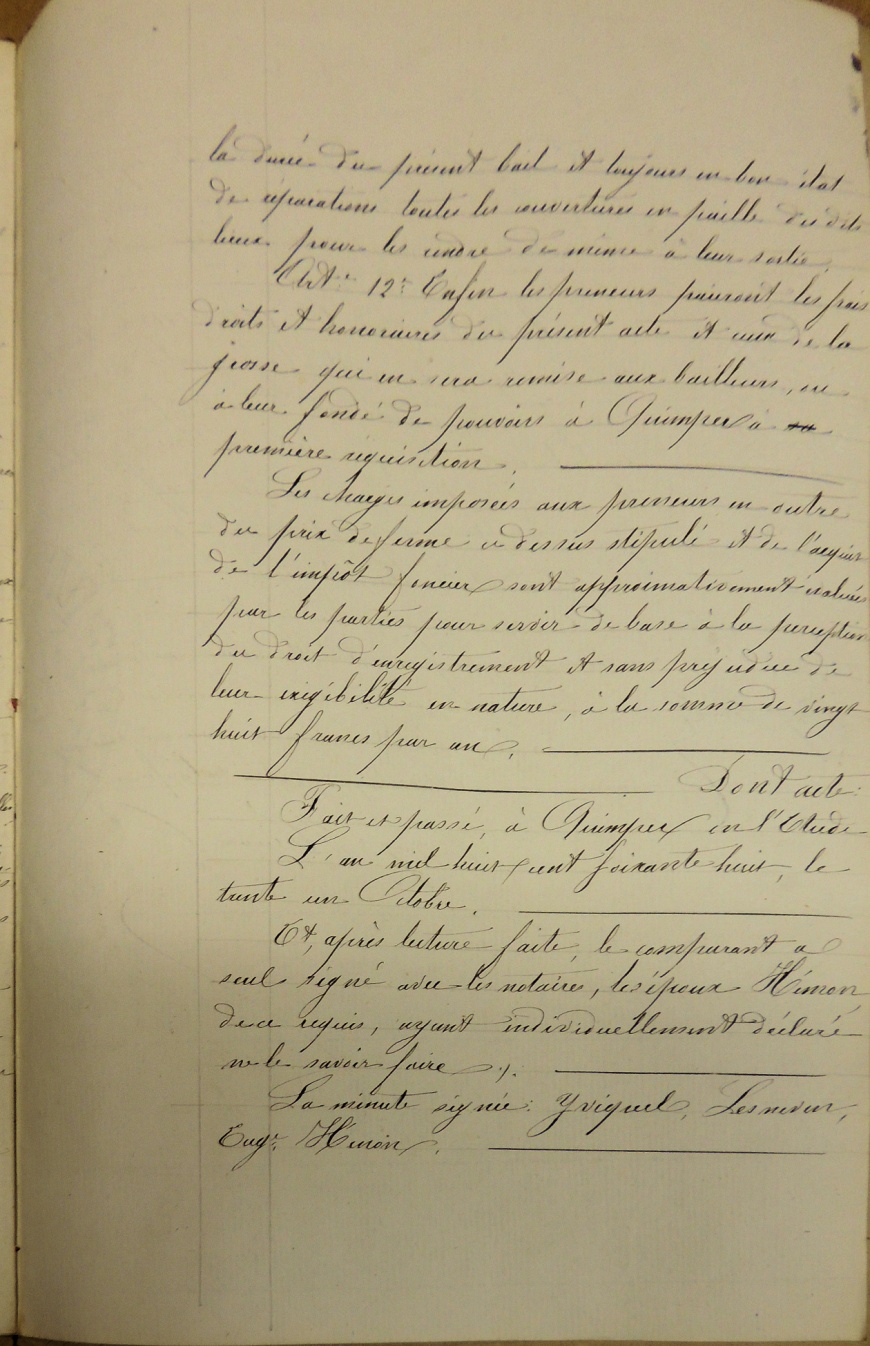 la durée du présent bail et toujours en bon état
de réparations toutes les couvertures en paille des dits
lieux pour les rendre de même à leur sortie.
Art.e 12e Enfin les preneurs paieront les frais
droits et honoraires du présent acte et ceux de la
grosse qui en sera remise aux bailleurs, ou
à leur fondé de pouvoirs à Quimper à
première réquisition.
Les charges imposées aux preneurs en outre
du prix de ferme ci dessus stipulé et de l'acquit
de l'impôt foncier sont approximativement évaluées
par les parties pour servir de base à la perception
du droit d'enregistrement et sans préjudice de
leur exigibilité en nature, à la somme de vingt
huit francs par an.
Dont acte.
Fait et passé, à Quimper en l'Etude
L'an mil huit cent soixante huit, le
trente un Octobre.
Et, après lecture faite, le comparant a
seul signé avec les notaires, les époux Hémon,
de ce requis, ayant individuellement déclaré
ne le savoir faire ./.
La minute signée: Yviquel, Lesneven,
Eugne Hémon.